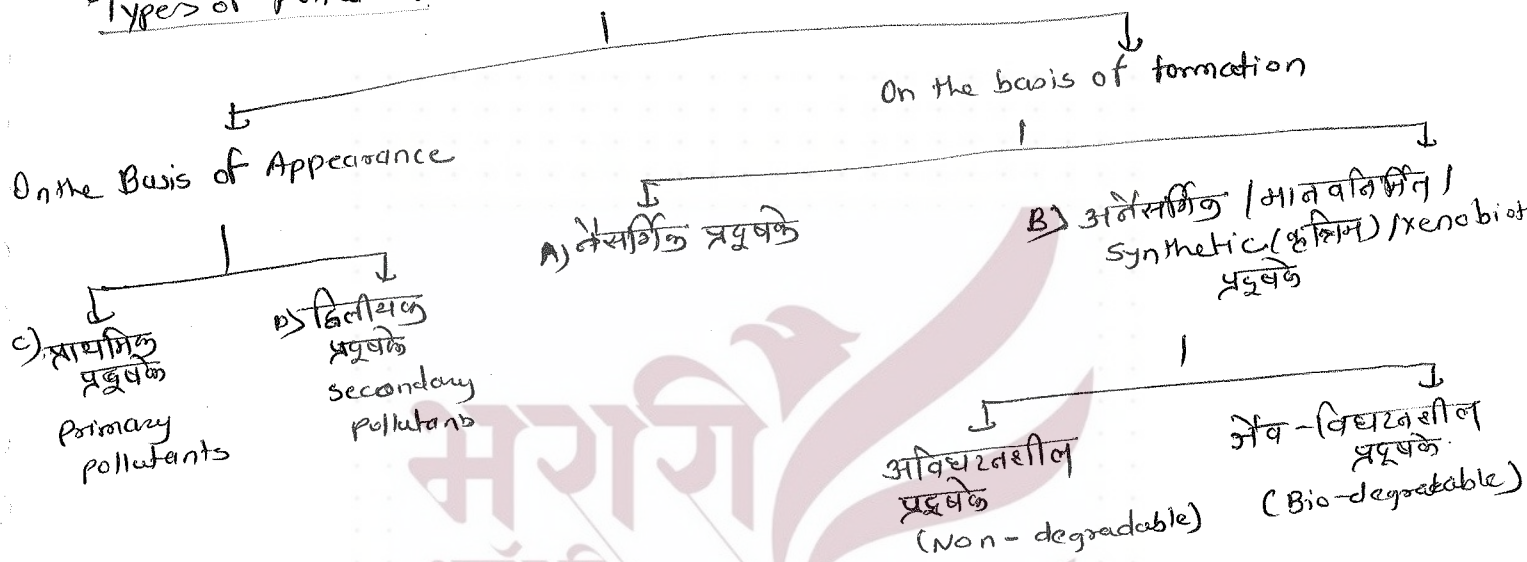 Types of
On the basis of formation
On the Basis of Appearance
A) नैसर्गिक प्रदूषके
B) अनैसर्गिक / मानवनिर्मित /
synthetic (कृत्रिम) / xenobiot
प्रदूषके
C) प्राथमिक
प्रदूषके
Primary
pollutants
D) द्वितीयक
प्रदूषके
secondary
pollutants
अविघटनशील
प्रदूषके
(Non-degradable)
जैव-विघटनशील
प्रदूषके
(Bio-degradable)